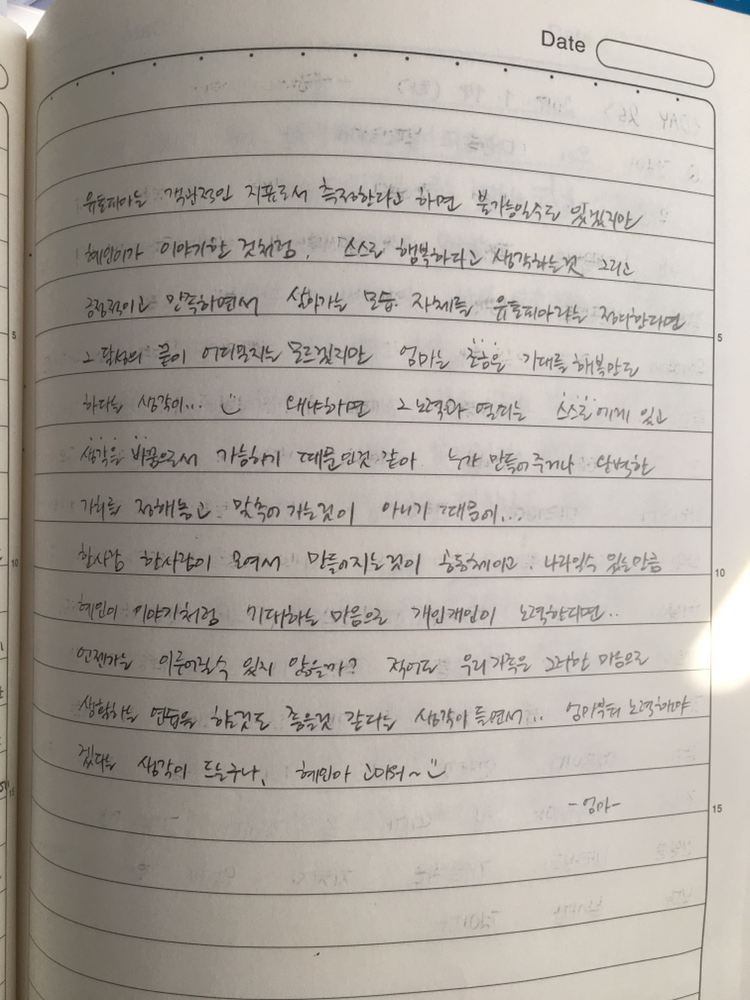 Date
유토피아는 객관적인 지표로서 측정한다고 하면 불가능일수도 있겠지만
혜인이가 이야기한 것처럼, 스스로 행복하다고 생각하는것 그리고
긍정적이고 만족하면서 살아가는 모습 자체를 유토피아라는 정의한다면
그 달성의 끝이 어디일지는 모르겠지만 엄마는 조금은 기대를 해봄만도
하다는 생각이... 왜냐하면 그 노력과 열쇠는 스스로에게 있고
생각을 바꿈으로서 가능하기 때문인것 같아 누가 만들어주거나 완벽한
가치를 정해놓고 맞추어 가는것이 아니기 때문에...
한사람 한사람이 모여서 만들어지는것이 공동체이고, 나라일수 있는만큼
혜인이 이야기처럼 기대하는 마음으로 개인개인이 노력한다면..
언젠가는 이루어질수 있지 않을까? 적어도 우리가족은 그러한 마음으로
생활하는 연습을 하는것도 좋을것 같다는 생각이 들면서... 엄마부터 노력해야
겠다는 생각이 드는구나, 혜인아 고마워~
-엄마-
5
10
15